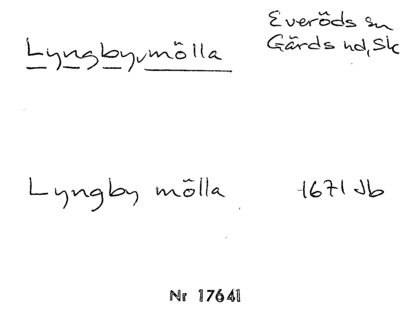 Lyngby mölla
Everöds sn
Gärds hd, Sk
Lyngby mölla 1671 Jb
Nr 17641